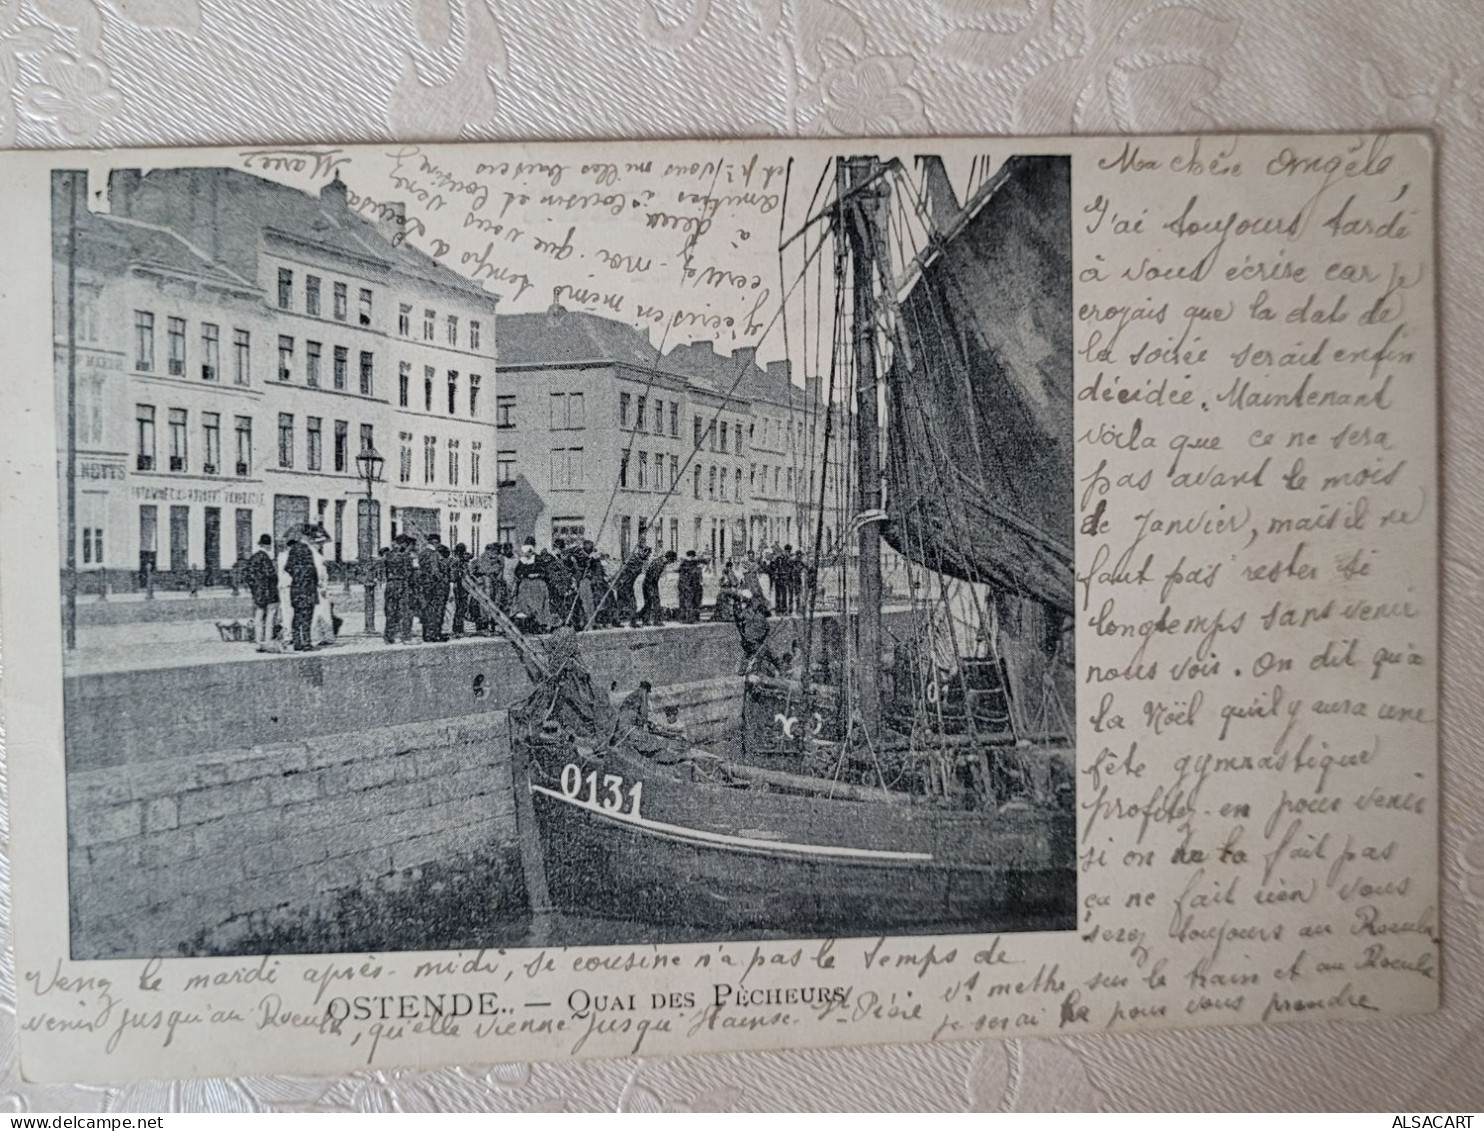 Ma chère Angèle,
J'ai toujours tardé
à vous écrire car je
croyais que la date de
la soirée serait enfin
décidée. Maintenant
voila que ce ne sera
pas avant le mois
de Janvier, mais il ne
faut pas rester si
longtemps sans venir
nous vois. On dit qu'a
la Noël qu'il y aura une
fête gymnastique
profitez-en pour venir
si on ne la fait pas
ça ne fait rien vous
serez toujours au Roeulx
Venez le mardi après-midi, si cousine n'a pas le temps de
venir jusqu'au Roeulx, qu'elle vienne jusqu' Haine-St-Pière
vs mettre sur le train et au Roeulx
je serai là pour vous prendre
J'écris en même temps à Louisa
écrivez-moi que vous venez
à deux
Amitiés à cousin et cousine
et pr vous mille baisers
Marie
OSTENDE. — QUAI DES PÊCHEURS
O131
ESTAMINET
ALSACART